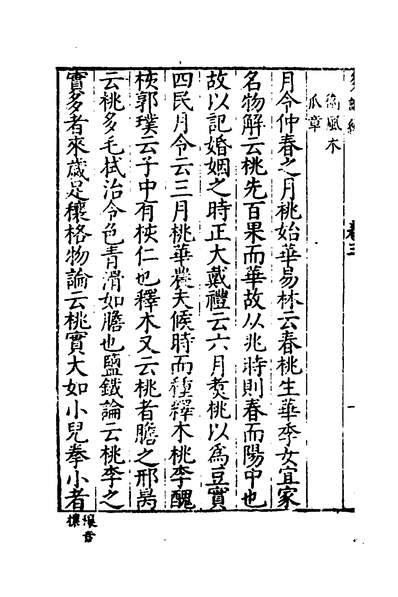 卷三
一
衛風木
瓜章
月令仲春之月桃始華易林云春桃生華季女宜家
名物解云桃先百果而華故以兆時則春而陽中也
故以記婚姻之時正大戴禮云六月煑桃以爲豆實
四民月令云三月桃華農夫候時而種釋木桃李醜
核郭璞云子中有核仁也釋木又云桃者膽之邢昺
云桃多毛拭治令色青滑如膽也鹽鐵論云桃李之
實多者來歲足穰格物論云桃實大如小兒拳小者
穰音